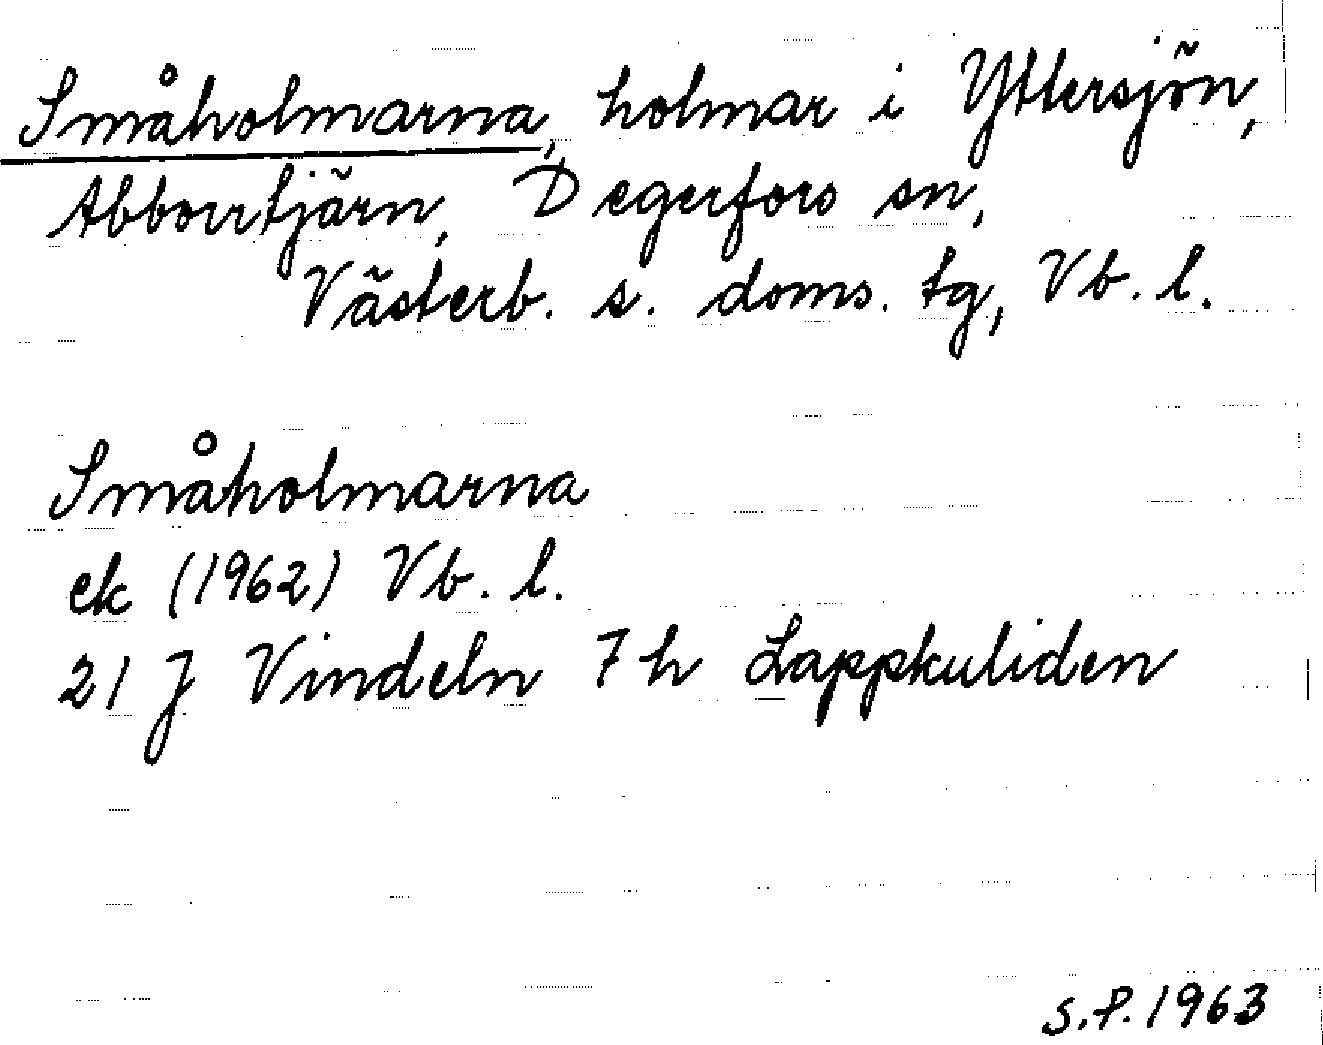 Småholmarna, holmar i Yttersjön,
Abborrtjärn, Degerfors sn,
Västerb. s. doms. tg, Vb. l.
Småholmarna
ek (1962) Vb. l.
21 J Vindeln 7 h Lappkuliden
S.P. 1963